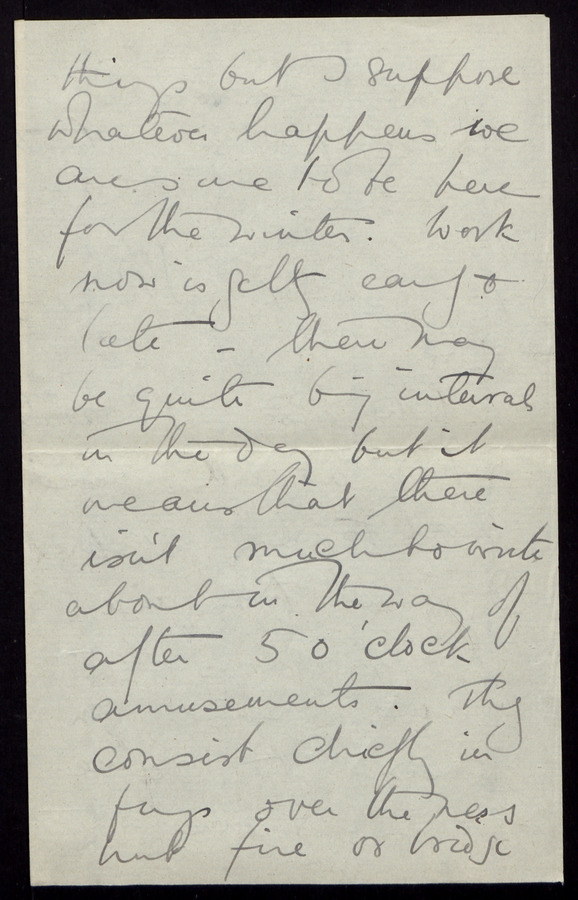 things but I suppose
whatever happens we
are sure to be here
for the winter. Work
now is fairly early &
late - there may
be quite big intervals
in the day but it
means that there
isn't much to write
about in the way of
after 5 o'clock
amusements. They
consist chiefly in
fugs over the mess
hut fire or bridge